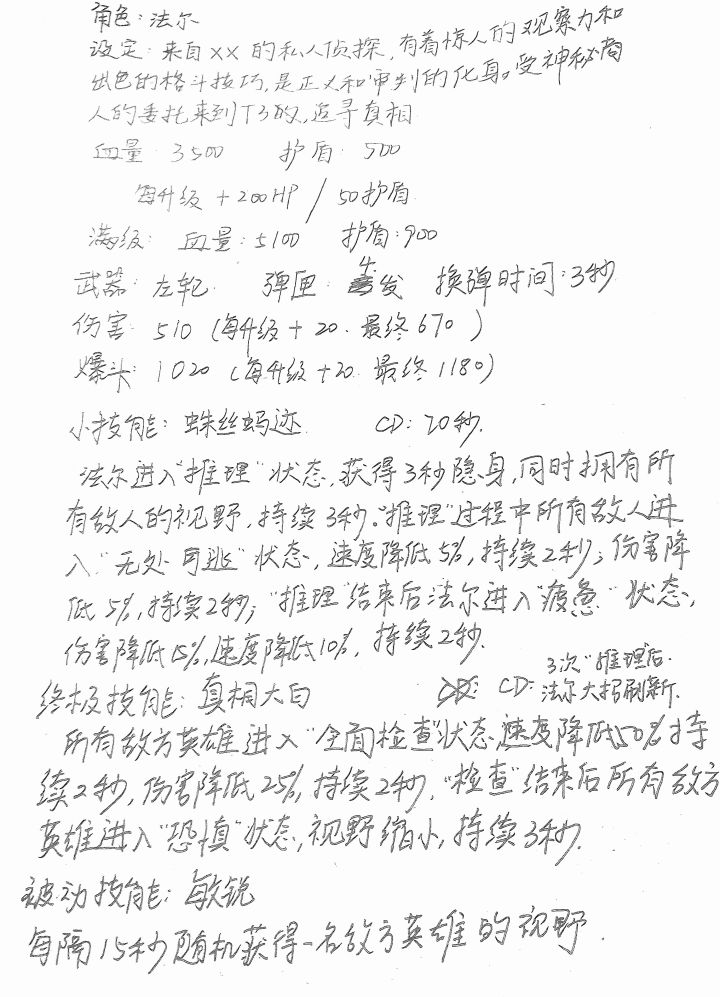 角色：法尔
设定：来自XX的私人侦探，有着惊人的观察力和
出色的格斗技巧，是正义和审判的化身。受神秘商
人的委托来到T3的，追寻真相
血量：3500 护盾：500
每升级+200HP/50护盾
满级：血量：5100 护盾：900
武器：左轮 弹匣：4发 换弹时间：3秒
伤害：510（每升级+20.最终670）
爆头：1020（每升级+20 最终1180）
小技能：蛛丝蚂迹 CD：20秒.
法尔进入"推理"状态，获得3秒隐身，同时拥有所
有敌人的视野，持续3秒."推理"过程中所有敌人进
入"无处可逃"状态，速度降低5%，持续2秒；伤害降
低5%，持续2秒；"推理"结束后法尔进入"疲惫"状态，
伤害降低15%，速度降低10%，持续2秒.
终极技能：真相大白 CD：3次"推理后.
法尔大招刷新.
所有敌方英雄进入"全面检查"状态，速度降低50%持
续2秒，伤害降低25%，持续2秒，"检查"结束后所有敌方
英雄进入"恐慎"状态，视野缩小，持续3秒.
被动技能：敏锐
每隔15秒随机获得一名敌方英雄的视野.